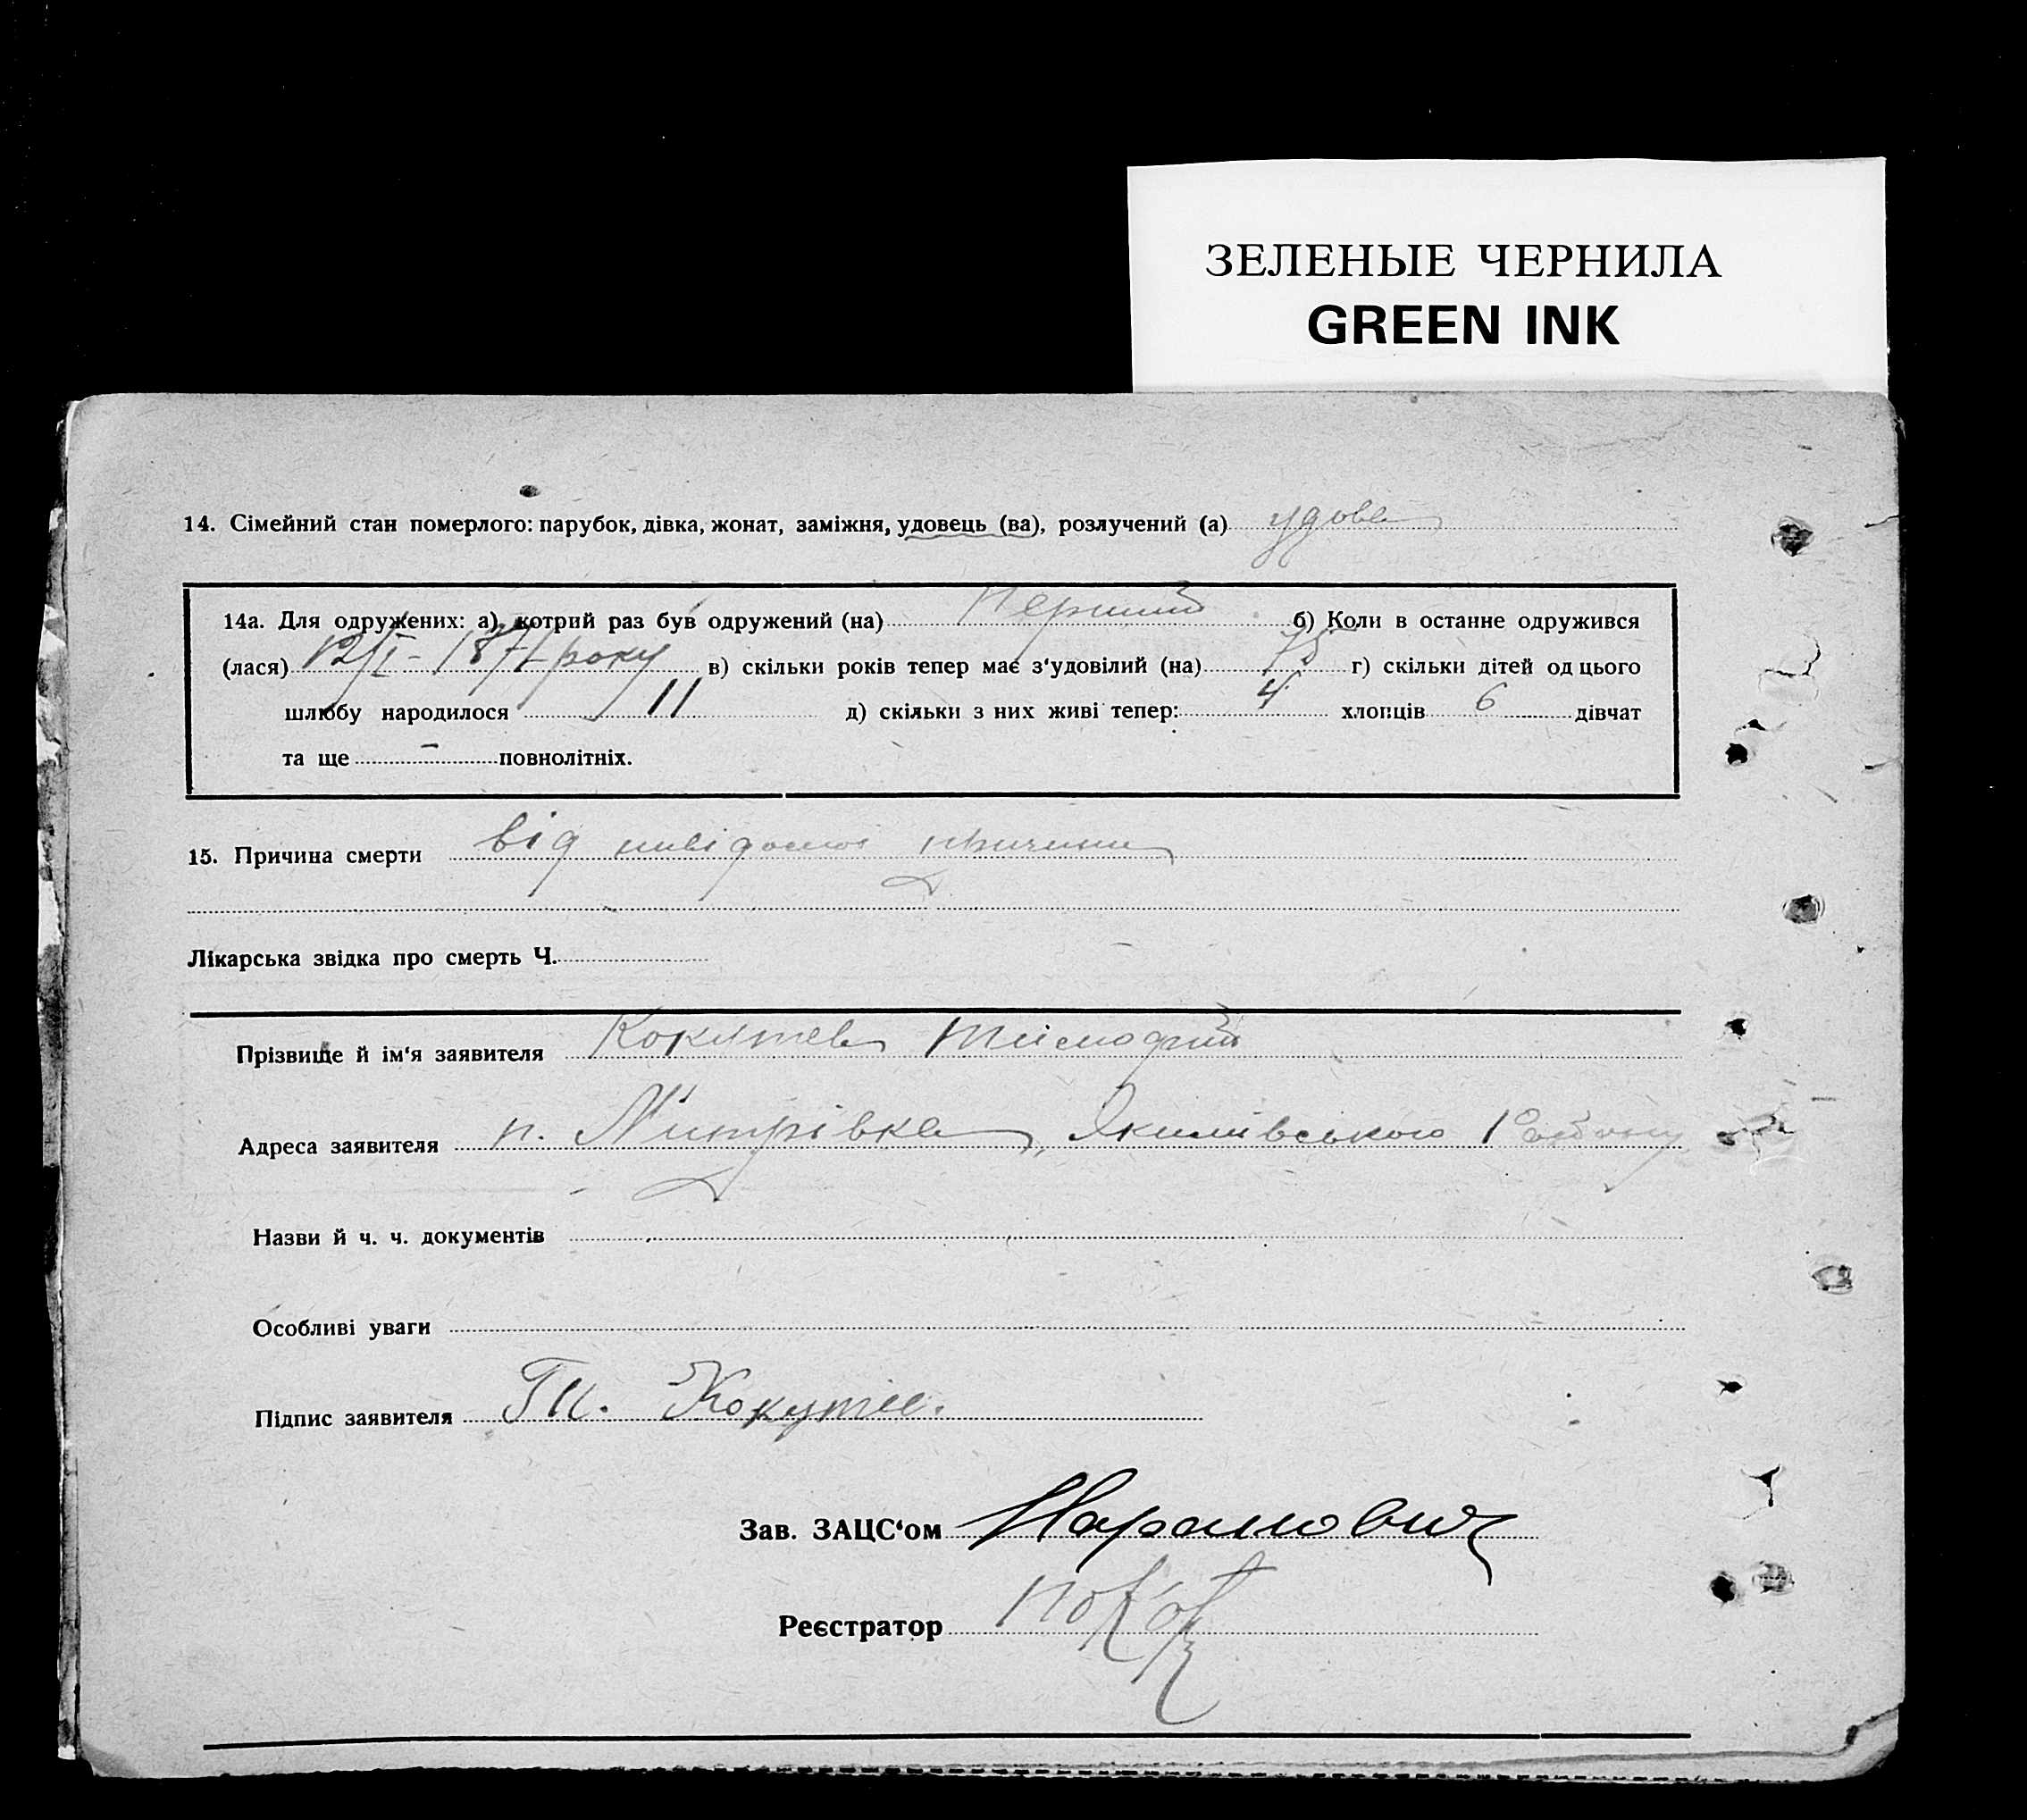 ЗЕЛЕНЫЕ ЧЕРНИЛА
GREEN INK
14. Сімейний стан померлого: парубок, дівка, жонат, заміжня, удовець (ва), розлучений (а) удова
14а. Для одружених: а) котрий раз був одружений (на) Перший б) Коли в останнє одружився
(лася) 12/I - 1871 року в) скільки років тепер має з‘удовілий (на) 75 г) скільки дітей од цього
шлюбу народилося 11 д) скільки з них живі тепер: 4 хлопців 6 дівчат
та ще — повнолітніх.
15. Причина смерти від невідомої причини
Лікарська звідка про смерть Ч.
Прізвище й ім‘я заявителя
Адреса заявителя п. Якимівського Району
Назви й ч. ч. документів
Особливі уваги
Підпис заявителя
Зав. ЗАЦС‘ом
Реєстратор